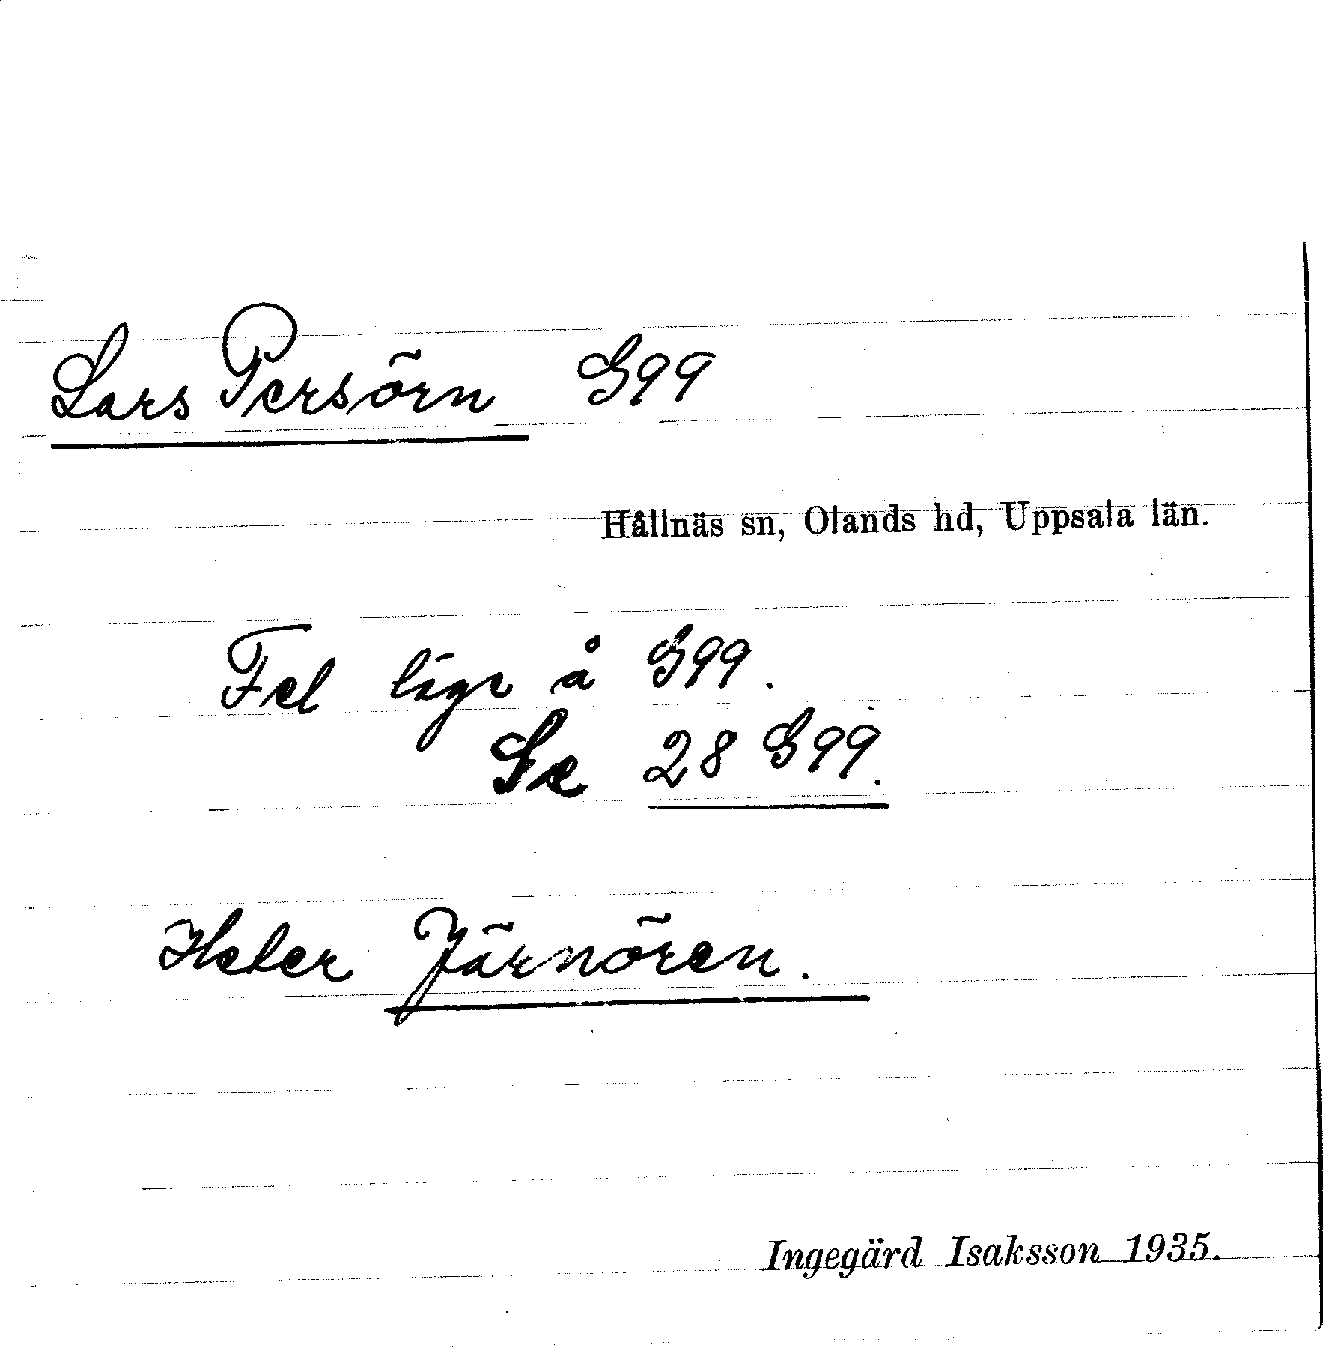 Lars Persörn G99
Hållnäs sn, Olands hd, Uppsala län.
Fel läge å G99.
Se 28 G99.
Heter Järnören.
Ingegärd Isaksson 1935.